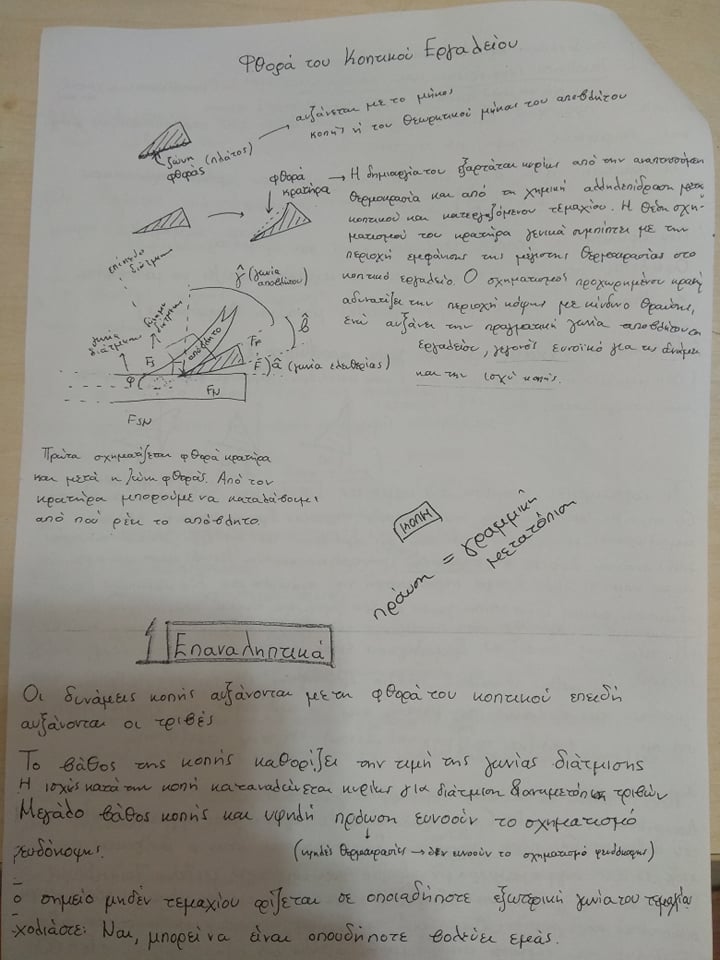 Φθορά του Κοπτικού Εργαλείου
αυξάνεται με το μήκος
κοπής ή του θεωρητικού μήκους του αποβλήτου
ζώνη
φθοράς (πλάτος)
φθορά
κρατήρα
Η δημιουργία του εξαρτάται κυρίως από την αναπτυσσόμενη
θερμοκρασία και από τη χημική αλληλεπίδραση μεταξύ
κοπτικού και κατεργαζόμενου τεμαχίου. Η θέση σχη-
ματισμού του κρατήρα γενικά συμπίπτει με την
περιοχή εμφάνισης της μέγιστης θερμοκρασίας στο
κοπτικό εργαλείο. Ο σχηματισμός προχωρημένου
αδυνατίζει την περιοχή κόψης με κίνδυνο θραύσης,
ενώ αυξάνει την πραγματική γωνία αποβλήτου
εργαλείου, γεγονός ευνοϊκό για τις δυνάμεις
και την ισχύ κοπής.
επίπεδο
διάτμισης
γ̂ (γωνία
αποβλήτου)
γωνία
διάτμισης
απόβλητο
β̂
Fs
F
α̂ (γωνία ελευθερίας)
φ
FN
FSN
Πρώτα σχηματίζεται φθορά κρατήρα
και μετά η ζώνη φθοράς. Από τον
κρατήρα μπορούμε να καταλάβουμε
από πού ρέει το απόβλητο.
ΚΟΠΗ
πρόωση = γραμμική
μετατόπιση
1 Επαναληπτικά
Οι δυνάμεις κοπής αυξάνονται με τη φθορά του κοπτικού επειδή
αυξάνονται οι τριβές
Το βάθος της κοπής καθορίζει την τιμή της γωνίας διάτμισης
Η ισχύς κατά την κοπή καταναλώνεται κυρίως για διάτμιση & αντιμετώπιση τριβών
Μεγάλο βάθος κοπής και υψηλή πρόωση ευνοούν το σχηματισμό
ψευδόκοψης.
(υψηλές θερμοκρασίες → δεν ευνοούν το σχηματισμό ψευδόκοψης)
ο σημείο μηδέν τεμαχίου ορίζεται σε οποιαδήποτε εξωτερική γωνία του τεμαχίου
χολιάστε: Ναι, μπορεί να είναι οπουδήποτε βολεύει εμάς.